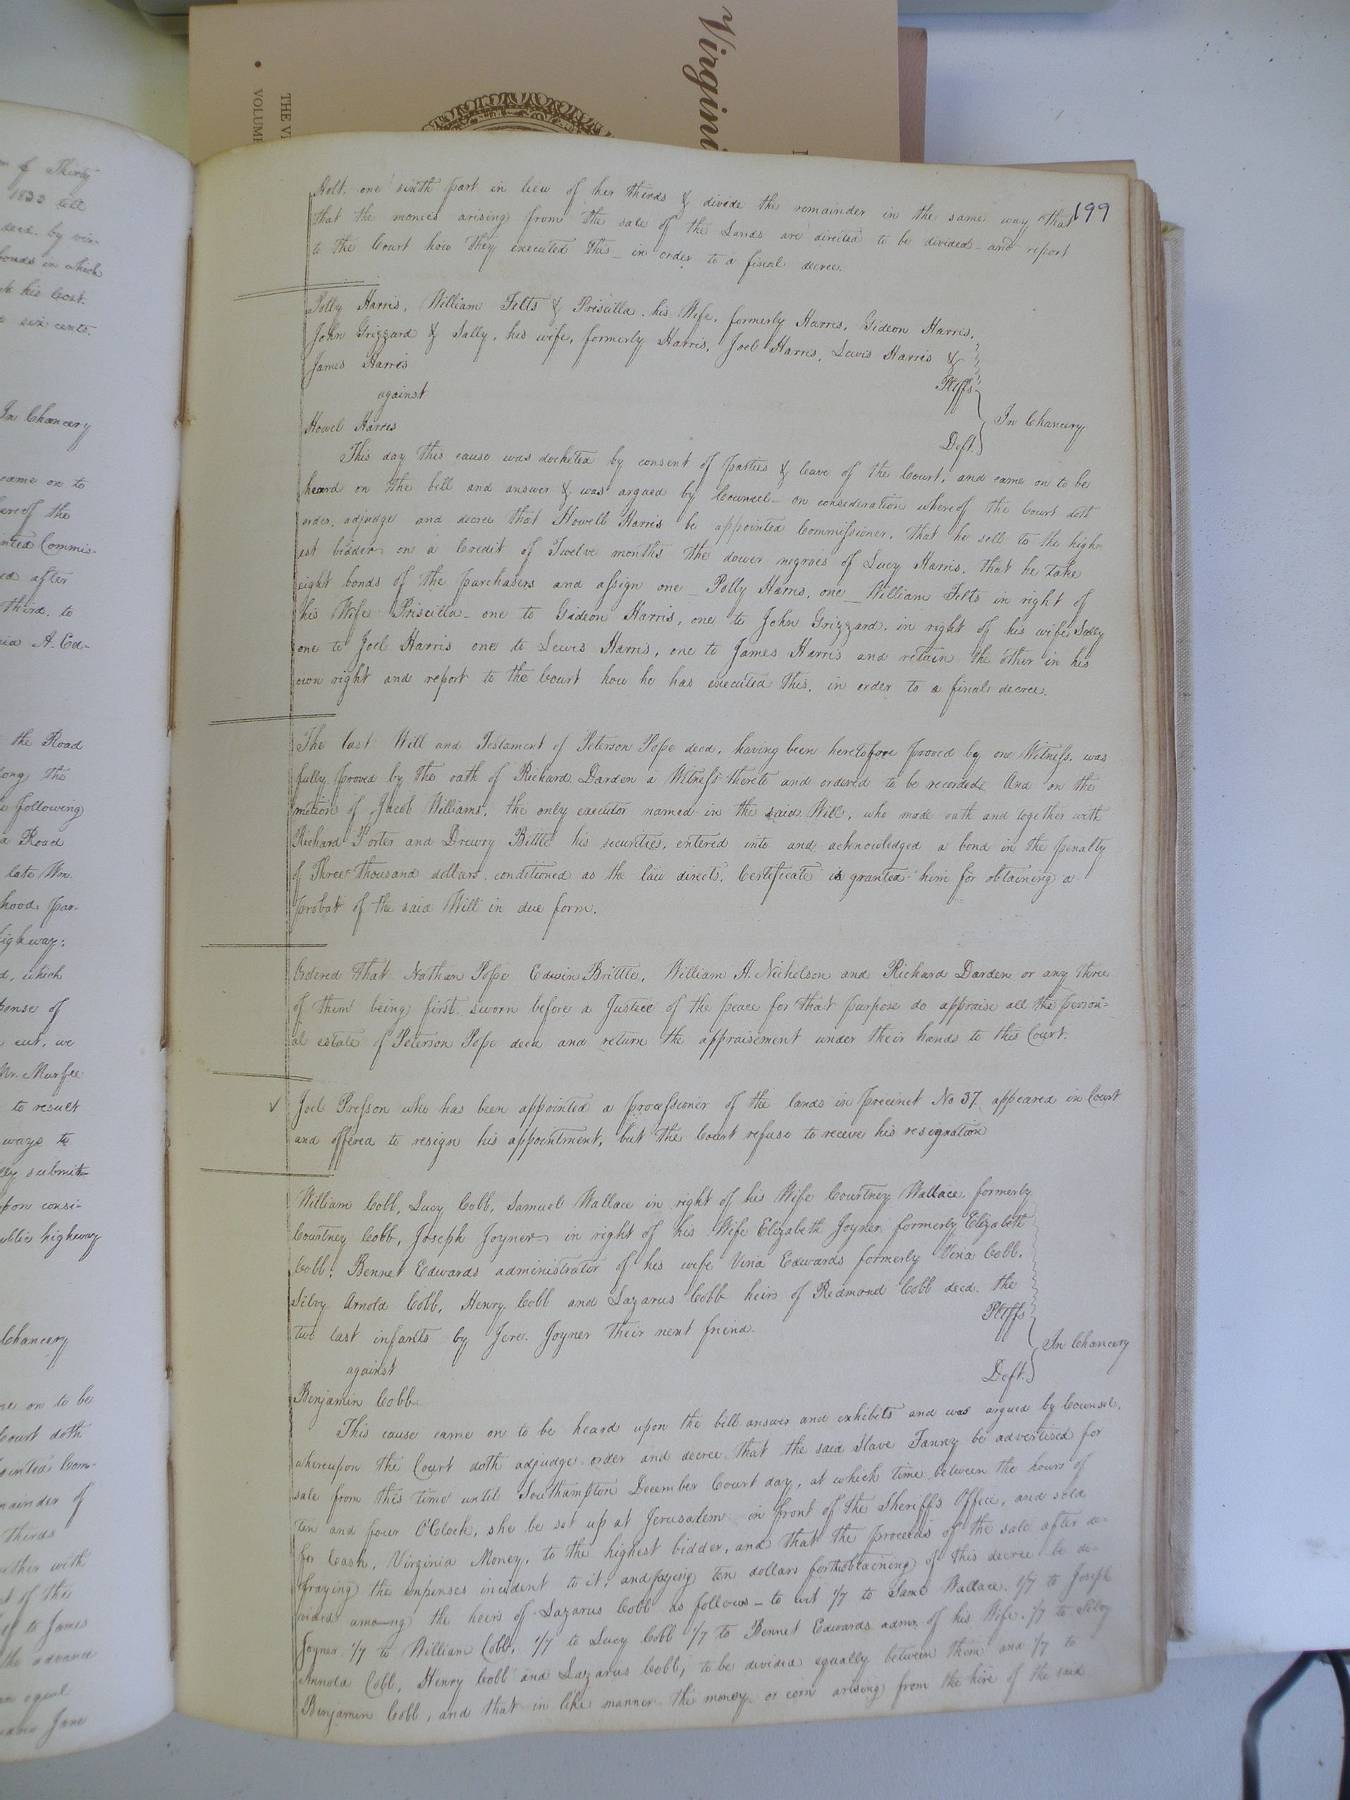 Virgini
THE V
VOLUM
199
Holt, one sixth part in lieu of her thirds & divide the remainder in the same way that
that the monies arising from the sale of the Lands are directed to be divided - and report
to the Court how they executed this - in order to a final decree.
Polly Harris, William Felts & Priscilla his Wife, formerly Harris, Gideon Harris,
John Grizzard & Sally, his wife, formerly Harris, Joel Harris, Lewis Harris &
James Harris
Pltffs
against
In Chancery
Howel Harris
Deft.
This day this cause was docketed by consent of parties & leave of the Court, and came on to be
heard on the bill and answer & was argued by Counsel - on consideration whereof the Court doth
order, adjudge and decree that Howell Harris be appointed Commissioner, that he sell to the high-
est bidder on a Credit of Twelve months the dower negroes of Lucy Harris, that he take
eight bonds of the purchasers and assign one - Polly Harris, one - William Felts in right of
his Wife Priscilla - one to Gideon Harris, one to John Grizzard in right of his wife Sally
one to Joel Harris one to Lewis Harris, one to James Harris and retain the other in his
own right and report to the Court how he has executed this, in order to a final decree.
The last Will and Testament of Peterson Pope decd. having been heretofore proved by one Witness, was
fully proved by the oath of Richard Darden a Witness thereto and ordered to be recorded. And on the
motion of Jacob Williams, the only executor named in the said Will, who made oath and together with
Richard Porter and Drewry Bittle his securities, entered into and acknowledged a bond in the penalty
of Three thousand dollars conditioned as the law directs, Certificate is granted him for obtaining a
probat of the said Will in due form.
Ordered that Nathan Pope Edwin Brittle, William H. Nicholson and Richard Darden or any three
of them being first sworn before a Justice of the peace for that purpose do appraise all the person-
al estate of Peterson Pope decd and return the appraisement under their hands to this Court.
Joel Presson who has been appointed a processioner of the lands in precinct No 37 appeared in Court
and offered to resign his appointment, but the Court refuse to receive his resignation
William Cobb, Lucy Cobb, Samuel Wallace in right of his Wife Courtney Wallace, formerly
Courtney Cobb, Joseph Joyner in right of his Wife Elizabeth Joyner formerly Elizabeth
Cobb; Bennet Edwards administrator of his wife Vina Edwards formerly Vina Cobb.
Silvy Arnold Cobb, Henry Cobb and Lazarus Cobb heirs of Redmond Cobb decd. the
two last infants by Jere. Joyner their next friend.
Pltffs
against
In Chancery
Benjamin Cobb
Deft.
This cause came on to be heard upon the bill answer and exhibits and was argued by Counsel,
whereupon the Court doth adjudge order and decree that the said Slave Fanny be advertised for
sale from this time until Southampton December Court day, at which time between the hours of
ten and four O'Clock, she be set up at Jerusalem in front of the Sheriffs Office, and sold
for Cash, Virginia Money, to the highest bidder, and that the proceeds of the sale after de-
fraying the expenses incident to it, and paying ten dollars for the obtaining of this decree be de-
vided among the heirs of Lazarus Cobb as follows - to wit 1/7 to Saml Wallace, 1/7 to Joseph
Joyner 1/7 to William Cobb, 1/7 to Lucy Cobb 1/7 to Bennet Edwards admr. of his Wife, 1/7 to Silvy
Annold Cobb, Henry Cobb and Lazarus Cobb, to be divided equally between them and 1/7 to
Benjamin Cobb, and that in like manner the money or corn arising from the hire of the said